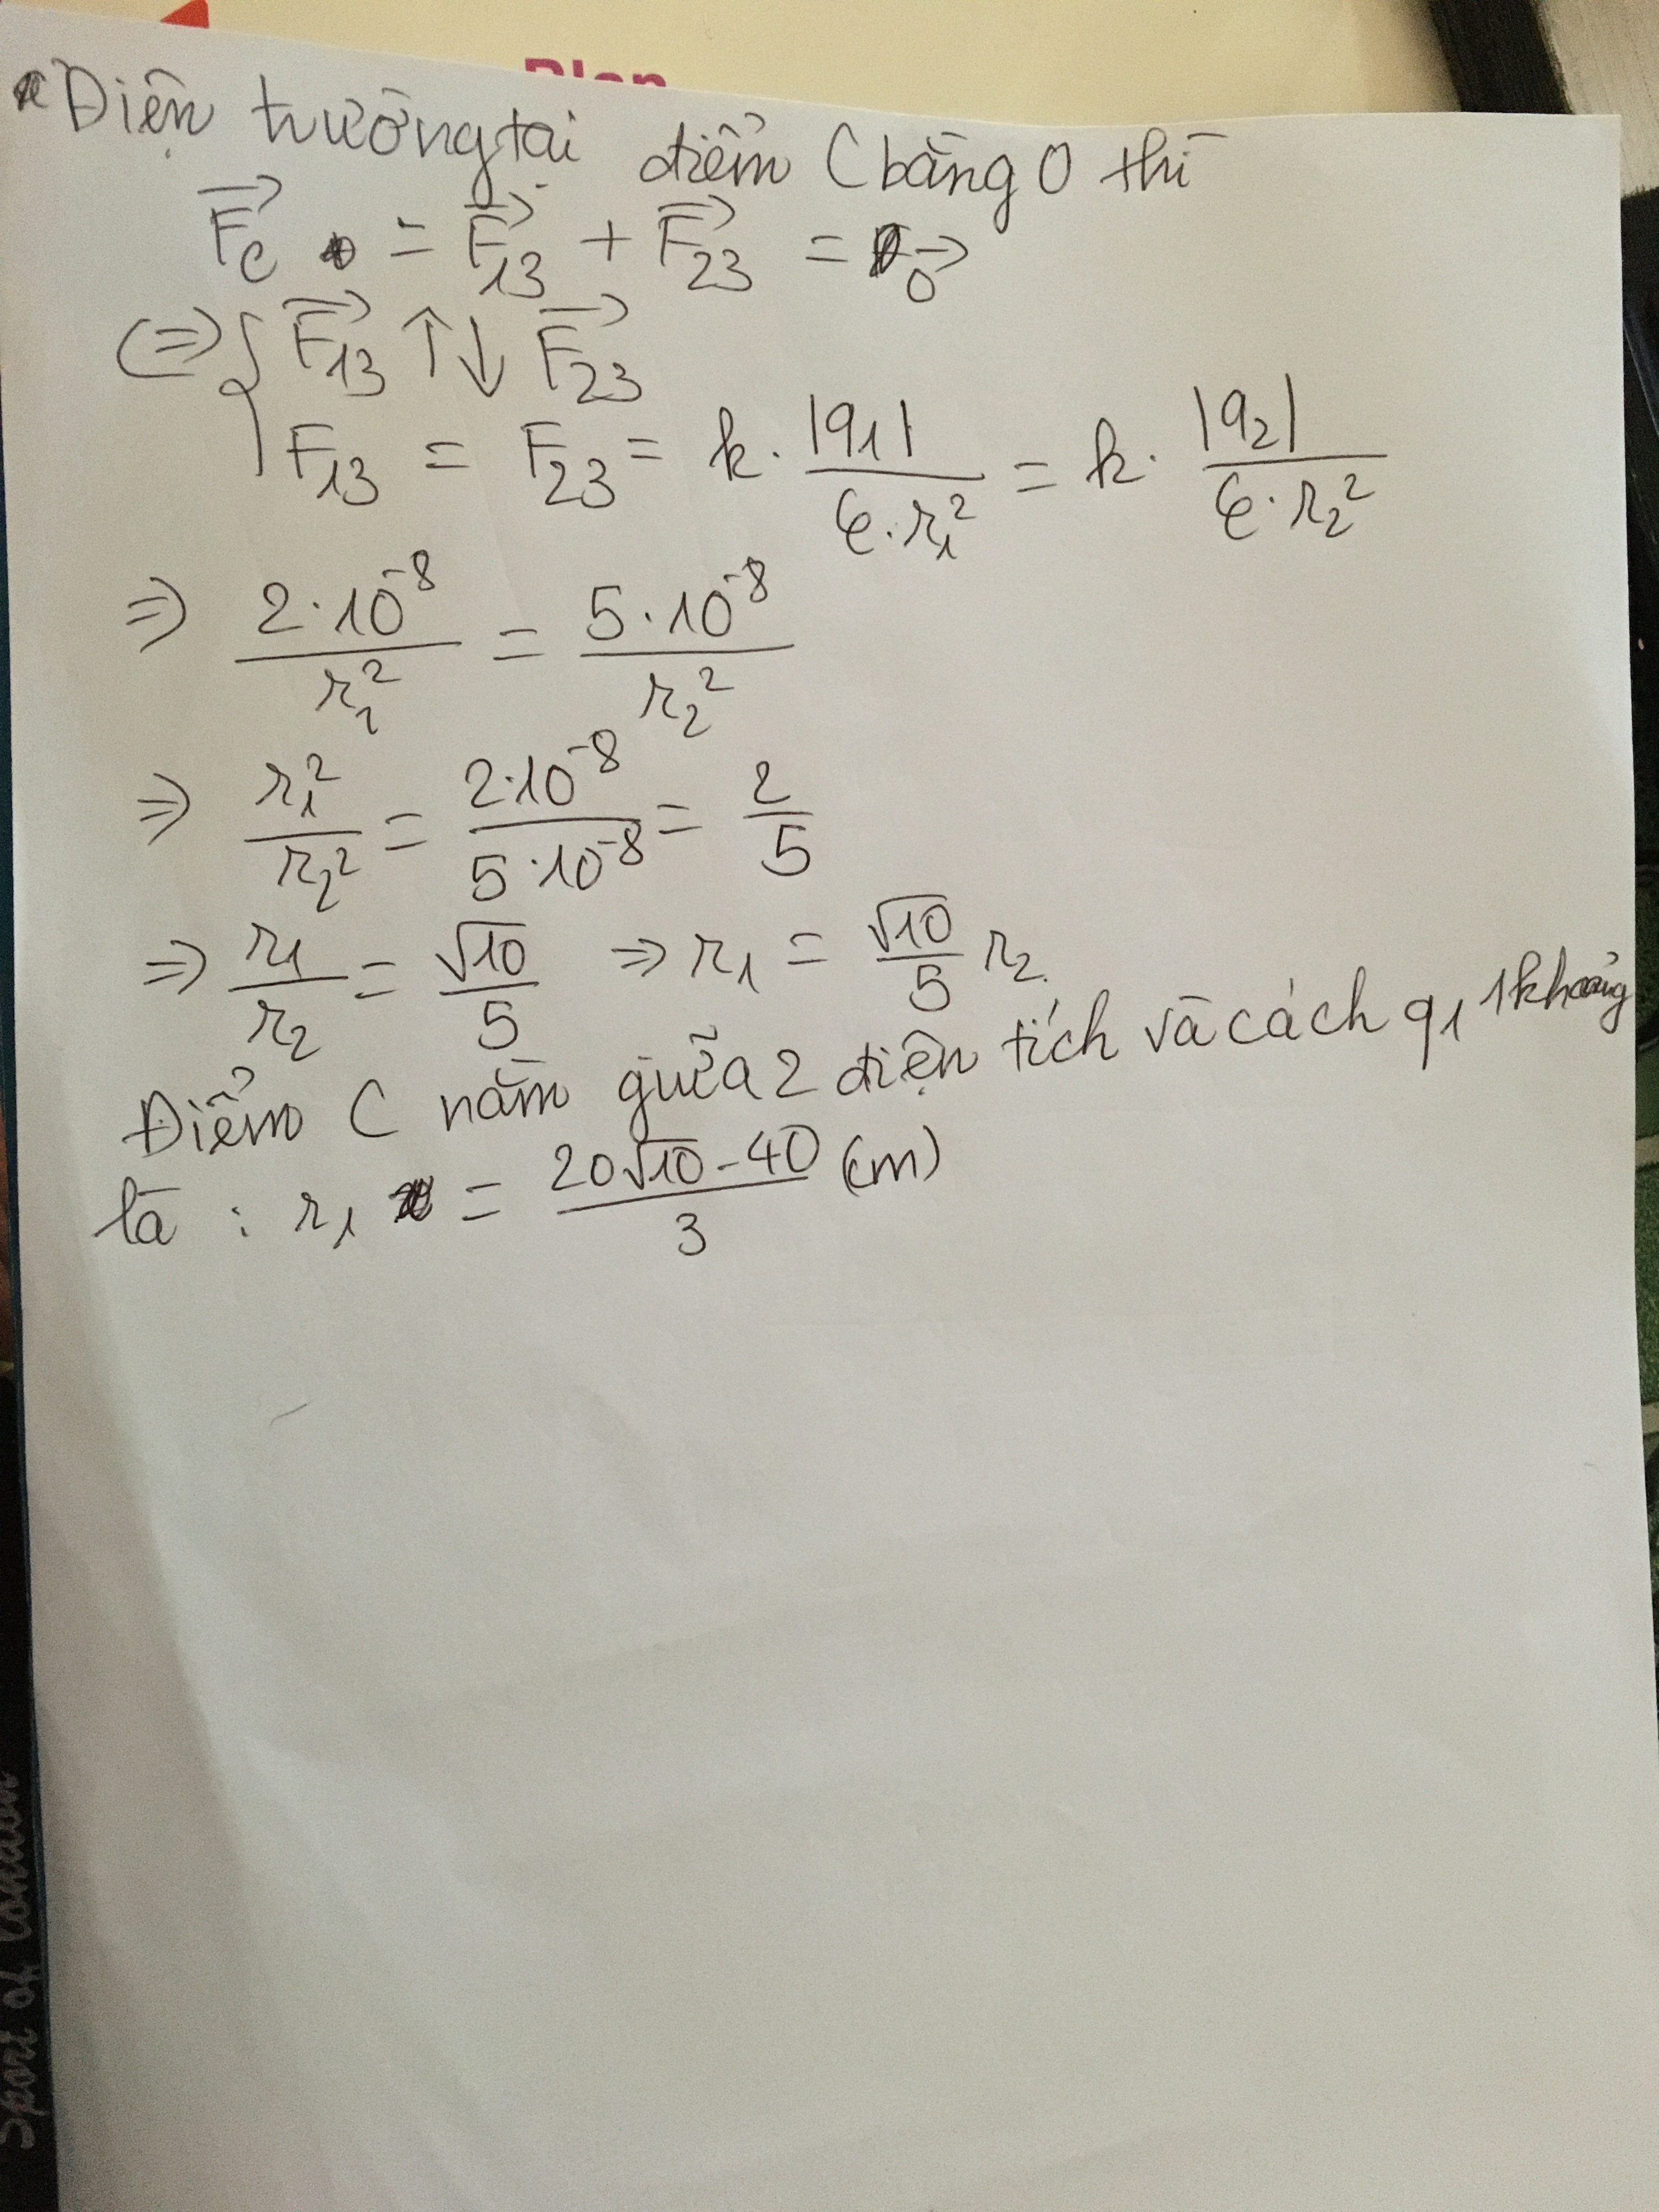 Plan
Điện trường tại điểm C bằng 0 thì
F⃗c = F⃗13 + F⃗23 = 0⃗
(=) { F⃗13 ↑↓ F⃗23
F13 = F23 = k. |q1| / ε.r1² = k. |q2| / ε.r2²
=> 2.10⁻⁸ / r1² = 5.10⁻⁸ / r2²
=> r1² / r2² = 2.10⁻⁸ / 5.10⁻⁸ = 2/5
=> r1 / r2 = √10 / 5 => r1 = √10 / 5 r2.
Điểm C nằm giữa 2 điện tích và cách q1 1 khoảng
là : r1 = 20√10 - 40 / 3 (cm)
Sport of London